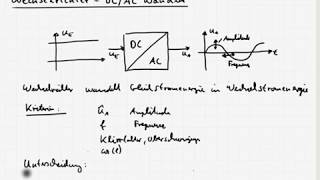 Wechselrichter = DC/AC Wandler
U_E
U_E
DC
AC
U_A
U_A
Amplitude
t
Frequenz
Wechselrichter wandelt Gleichstromenergie in Wechselstromenergie
Kriterien: Û_A Amplitude
f Frequenz
Klirrfaktor, Oberschwingungen
cos(φ)
Unterscheidung: